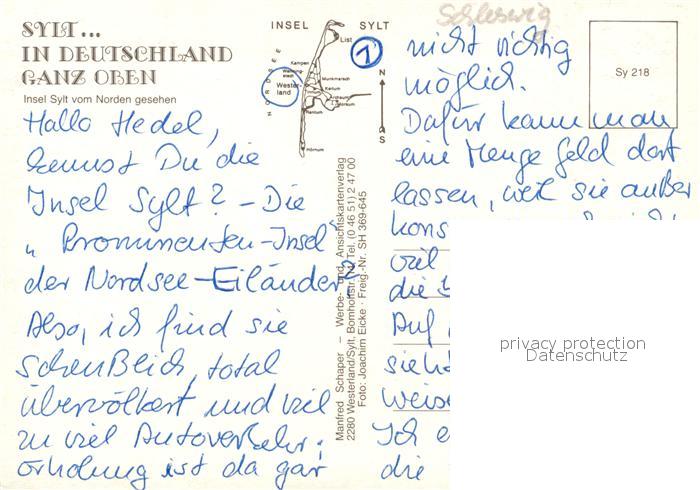 Schleswig
SYLT...
IN DEUTSCHLAND
GANZ OBEN
Insel Sylt vom Norden gesehen
INSEL SYLT
List
1
Kampen
Munkmarsch
Wester-
land
Keitum
Morsum
Rantum
Hörnum
NORDSEE
N
S
Sy 218
Hallo Hedel,
kennst Du die
Insel Sylt? – Die
"Prominenten-Insel"
der Nordsee-Eiländer?
Also, ich find sie
scheußlich, total
übervölkert und viel
zu viel Autoverkehr;
Erholung ist da gar
Manfred Schaper – Werbe- und Ansichtskartenverlag
2280 Westerland/Sylt, Bomhoffstr. Tel. (0 46 51) 2 47 00
Foto: Joachim Eicke · Freig.-Nr. SH 369-645
nicht richtig
möglich.
Dafür kann man
eine Menge Geld dort
lassen, weil sie außer
kons
viel
die
Auf
sieht
weise
Ich e
die
privacy protection
Datenschutz